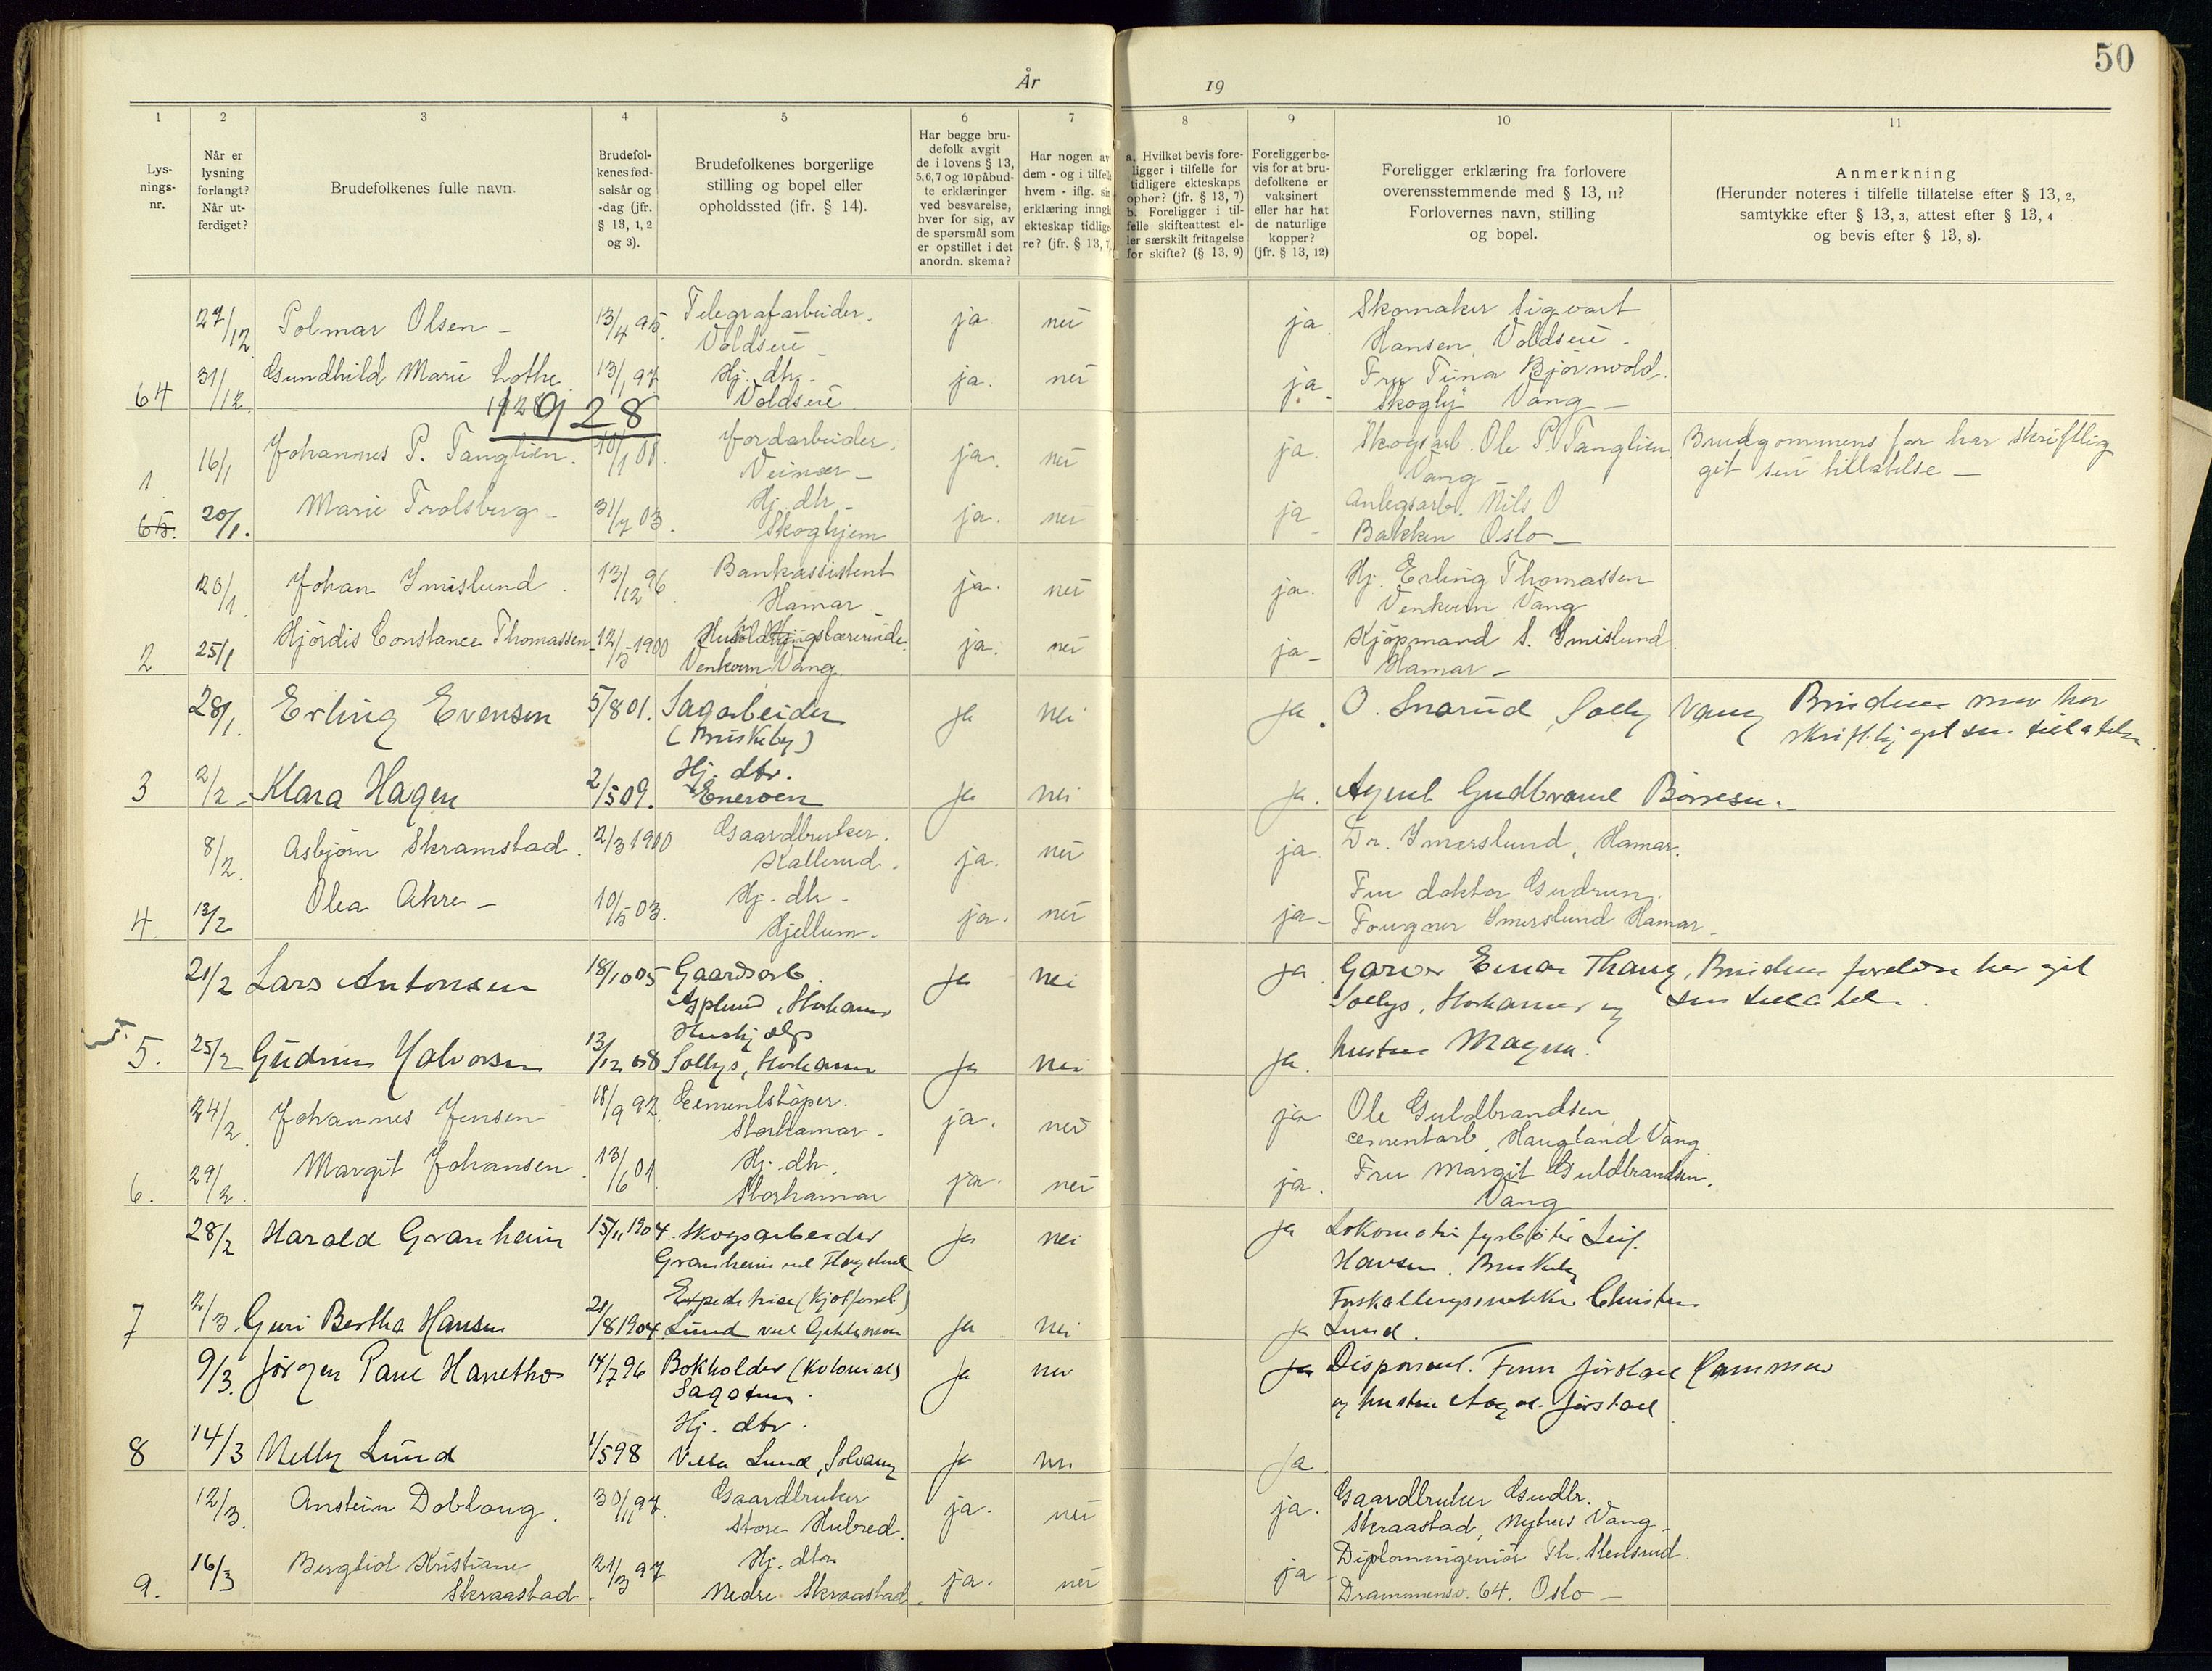 50
År 19
1 2 3 4 5 6 7 8 9 10 11
Lys-
nings-
nr.
Når er
lysning
forlangt?
Når ut-
ferdiget?
Brudefolkenes fulle navn.
Brudefol-
kenes fød-
selsår og
-dag (jfr.
§ 13, 1, 2
og 3).
Brudefolkenes borgerlige
stilling og bopel eller
opholdssted (jfr. § 14).
Har begge bru-
defolk avgit
de i lovens § 13,
5, 6, 7 og 10 påbud-
te erklæringer
ved besvarelse,
hver for sig, av
de spørsmål som
er opstillet i det
anordn. skema?
Har nogen av
dem - og i tilfelle
hvem - iflg. sin
erklæring inngå
ekteskap tidlige-
re? (jfr. § 13, 7)
a. Hvilket bevis fore-
ligger i tilfelle for
tidligere ekteskaps
ophør? (jfr. § 13, 7)
b. Foreligger i til-
felle skifteattest el-
ler særskilt fritagelse
for skifte? (§ 13, 9)
Foreligger be-
vis for at bru-
defolkene er
vaksinert
eller har hat
de naturlige
kopper?
(jfr. § 13, 12)
Foreligger erklæring fra forlovere
overensstemmende med § 13, 11?
Forlovernes navn, stilling
og bopel.
Anmerkning
(Herunder noteres i tilfelle tillatelse efter § 13, 2,
samtykke efter § 13, 3, attest efter § 13, 4
og bevis efter § 13, 8).
27/12 Polmar Olsen - 13/4 95. Telegrafarbeider. ja nei ja. Skomaker Sigvart
Voldseie - Hansen, Voldseie -
64 31/12. Gundhild Marie Lothe 13/1 97 Hj. dtr. ja. nei ja - Fru Tina Bjørnvold.
Voldseie "Skogly" Vang -
1928
1 16/1 Johannes P. Tanglien. 10/1 01. Jordarbeider. ja. nei ja. Skogsarb. Ole P. Tanglien Brudgommens far har skriftlig
Veimær - Vang git sin tillatelse -
65. 20/1. Marie Trolsberg - 31/7 03. Hj. dtr. ja. nei ja - Anlegsarb. Nils O
Skoghjem Bakken Oslo -
20/1 Johan Smislund. 13/12 96 Bankassistent ja. nei ja. Hj. Erling Thomassen
Hamar - Venkvern Vang
2 25/1 Hjördis Constance Thomassen 12/5 1900 ja. nei ja - Kjøpmand S. Smislund
Venkvern Vang. Hamar -
28/1. Erling Evensen 5/8 01. Sagarbeider ja nei ja. O. Snarud, Solly Vang Brudens mor har
(Briskeby) skriftlig git sin tillatelse.
3 2/2 - Klara Hagen 2/5 09. Hj. dtr. ja nei ja. Agent Gudbrand Börresen. -
Eneroen
8/2. Asbjørn Skramstad. 2/3 1900 Gaardbruker. ja. nei ja. Dr. Smerslund, Hamar.
Kallerud.
4. 13/2 Olea Akre - 10/5 03. Hj. dtr. - ja. nei ja - Fru doktor Gudrun
Hjellum. Fougner Smerslund Hamar -
21/2 Lars Antonsen 18/10 05 Gaardsarb. ja nei ja Garver Einar Thang, Brudens foreldre har git
Asplund, Storhamar Sollys, Storhamar og sin tillatelse.
5. 25/2 Gudrun Halvorsen 13/12 08 Hushjelp ja nei ja. hustru Magna.
Sollys, Storhamar
24/2. Johannes Jensen 18/9 92. Cementstøper. ja. nei ja Ole Guldbrandsen,
Storhamar. cementarb, Haugland Vang.
6. 29/2. Margit Johansen 13/6 01. Hj. dtr. ja. nei ja. Fru Margit Guldbrandsen.
Storhamar Vang
28/2 Harald Granheim 15/11 1904. Skogsarbeider ja nei ja Lokomotivfyrbøter Leif
Granheim Hansen. Briskeby
7 2/3. Guri Bertha Hansen 21/8 1904 Expeditrice ja nei ja Forskallingssnekker Christian
Lund Lund.
9/3. Jörgen Paul Hanetho 14/7 96 Bokholder (Kolonial) ja nei ja Disponent. Finn Jörstad
Sagatun. og hustru Jörstad
8 14/3 Nelly Lund 1/5 98 Hj. dtr. ja nei ja
Villa Lund, Solvang
12/3. Anstein Doblaug. 30/11 97. Gaardbruker ja. nei ja. Gaardbruker Gudbr.
Store Hubred. Skraastad, Nyhus Vang -
9. 16/3 Bergliot Kristiane 21/3 97 Hj. dtr. ja. nei ja - Diplomingeniør Th. Stensrud.
Skraastad. Nedre Skraastad. Drammensv. 64. Oslo -